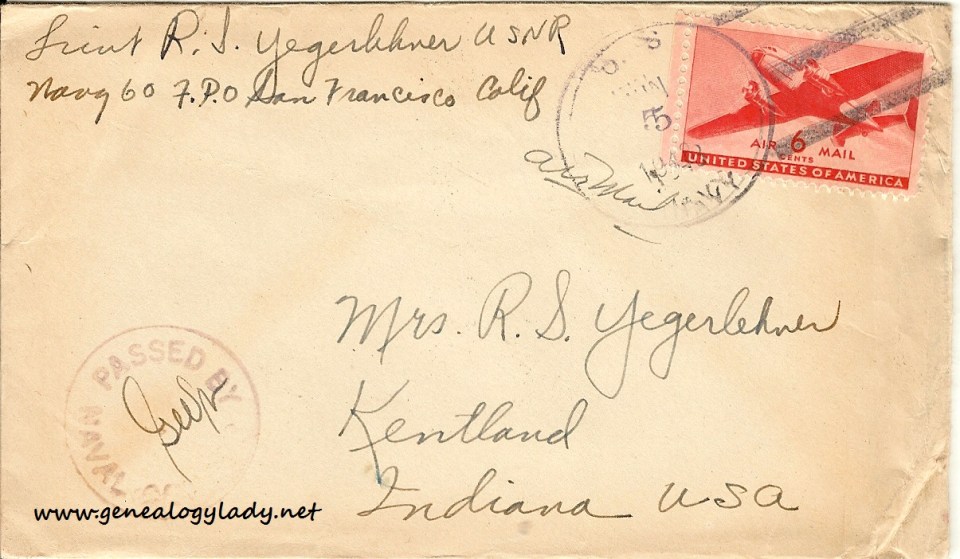 Lieut R. S. Yegerlehner USNR
Navy 60 F.P.O San Francisco Calif
U. S.
JUN
5
NAVY
Air Mail
AIR 6 CENTS MAIL
UNITED STATES OF AMERICA
Mrs. R. S. Yegerlehner
Kentland
Indiana USA
PASSED BY
NAVAL
www.genealogylady.net